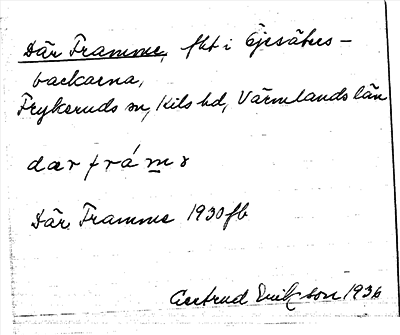 Där Framme, fht i Gjesäters-
backarna,
Frykeruds sn, Kils hd, Värmlands län
där Framme 1930 fb
Gertrud Eriksson 1936